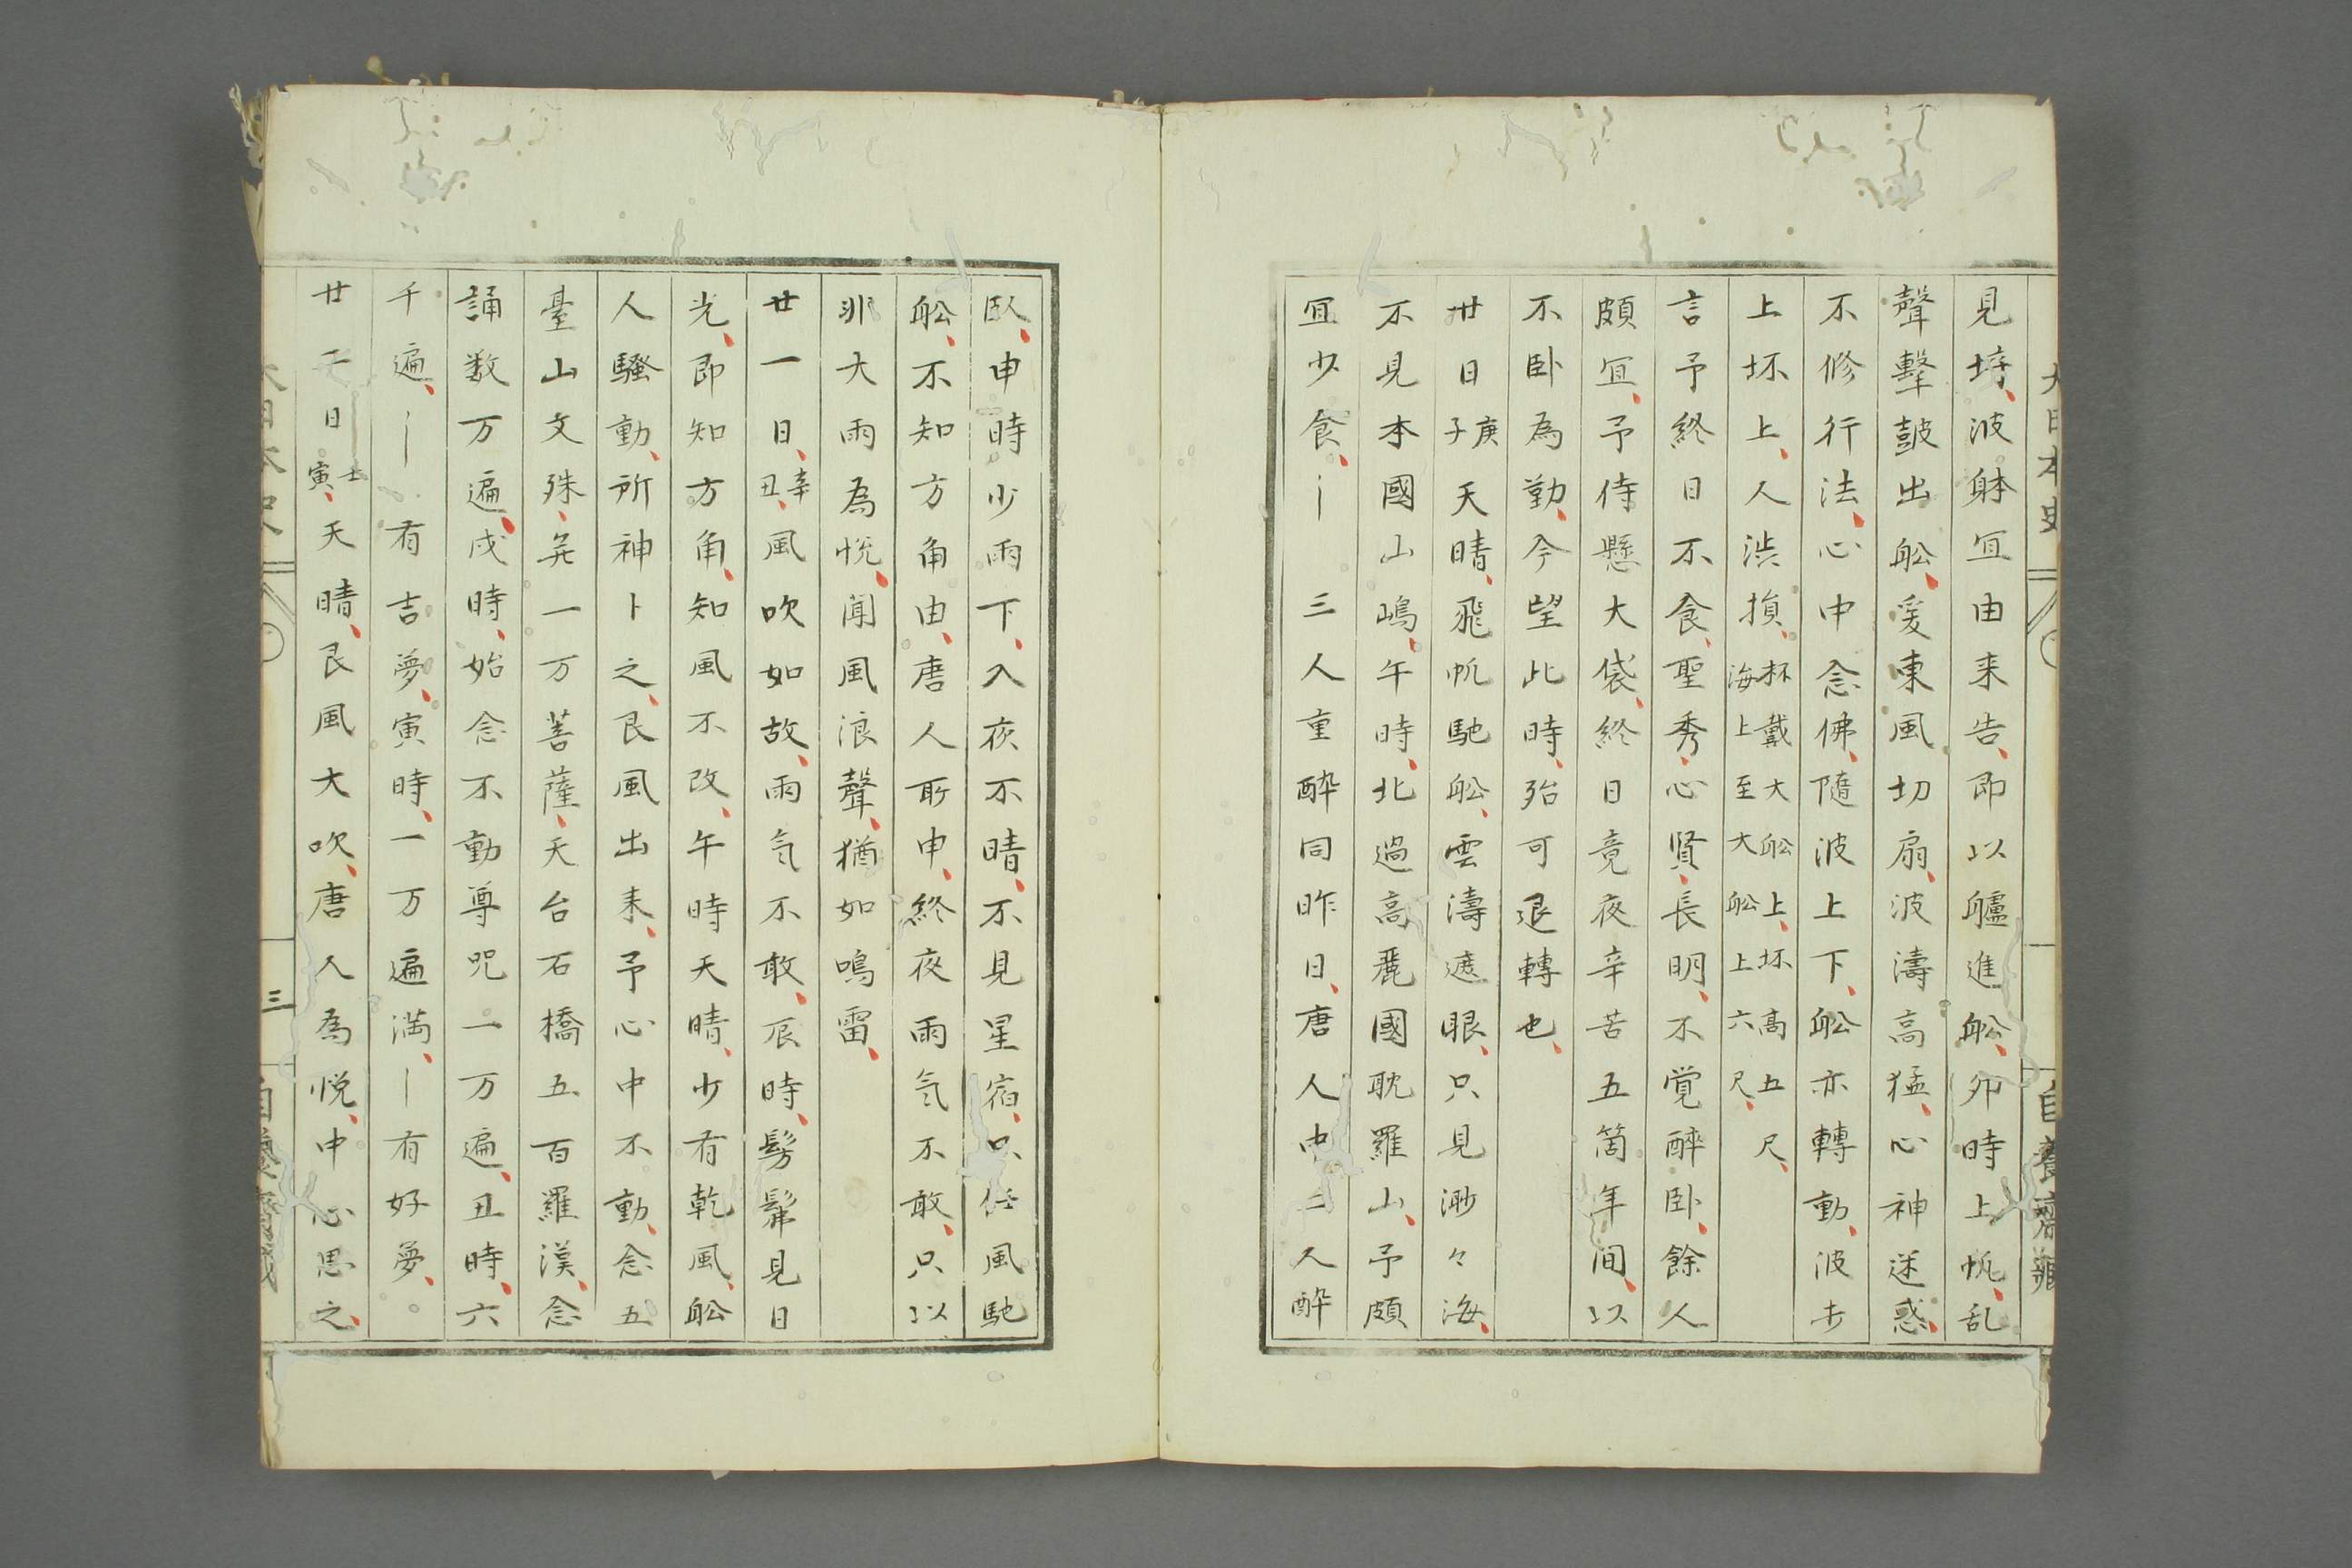 見埼波躰冝由来告即以艫進舩夘時上帆乱
聲擊鼓出舩爰東風切扇波濤高猛心神迷惑
不修行法心中念佛隨波上下舩亦轉動波去
上坏上人渋損
杯戴大舩上坏髙五尺
海上至大舩上六尺
言予終日不食聖秀心賢長明不覚醉卧餘人
頗冝予侍懸大袋終日竟夜辛苦五箇年間以
不卧為勤今望此時殆可退轉也
丗日
庚
子
天晴飛帆馳舩雲濤遮眼只見渺々海
不見本國山嶋午時北過高麗國耽羅山予頗
冝少食三人重酔同昨日唐人中二人酔
臥申時少雨下入夜不晴不見星宿只任風馳
舩不知方角由唐人所申終夜雨気不敢只以
非大雨為悅聞風浪聲猶如鳴雷
廿一日
辛
丑
風吹如故雨気不敢辰時髣髴見日
光即知方角知風不改午時天晴少有乾風舩
人騒動所神卜之艮風出来予心中不動念五
臺山文殊并一万菩薩天台石橋五百羅漢念
誦数万遍戌時始念不動尊咒一万遍丑時六
千遍有吉夢寅時一万遍満有好夢
日
寅
天晴艮風大吹唐人為悅中心思之
三